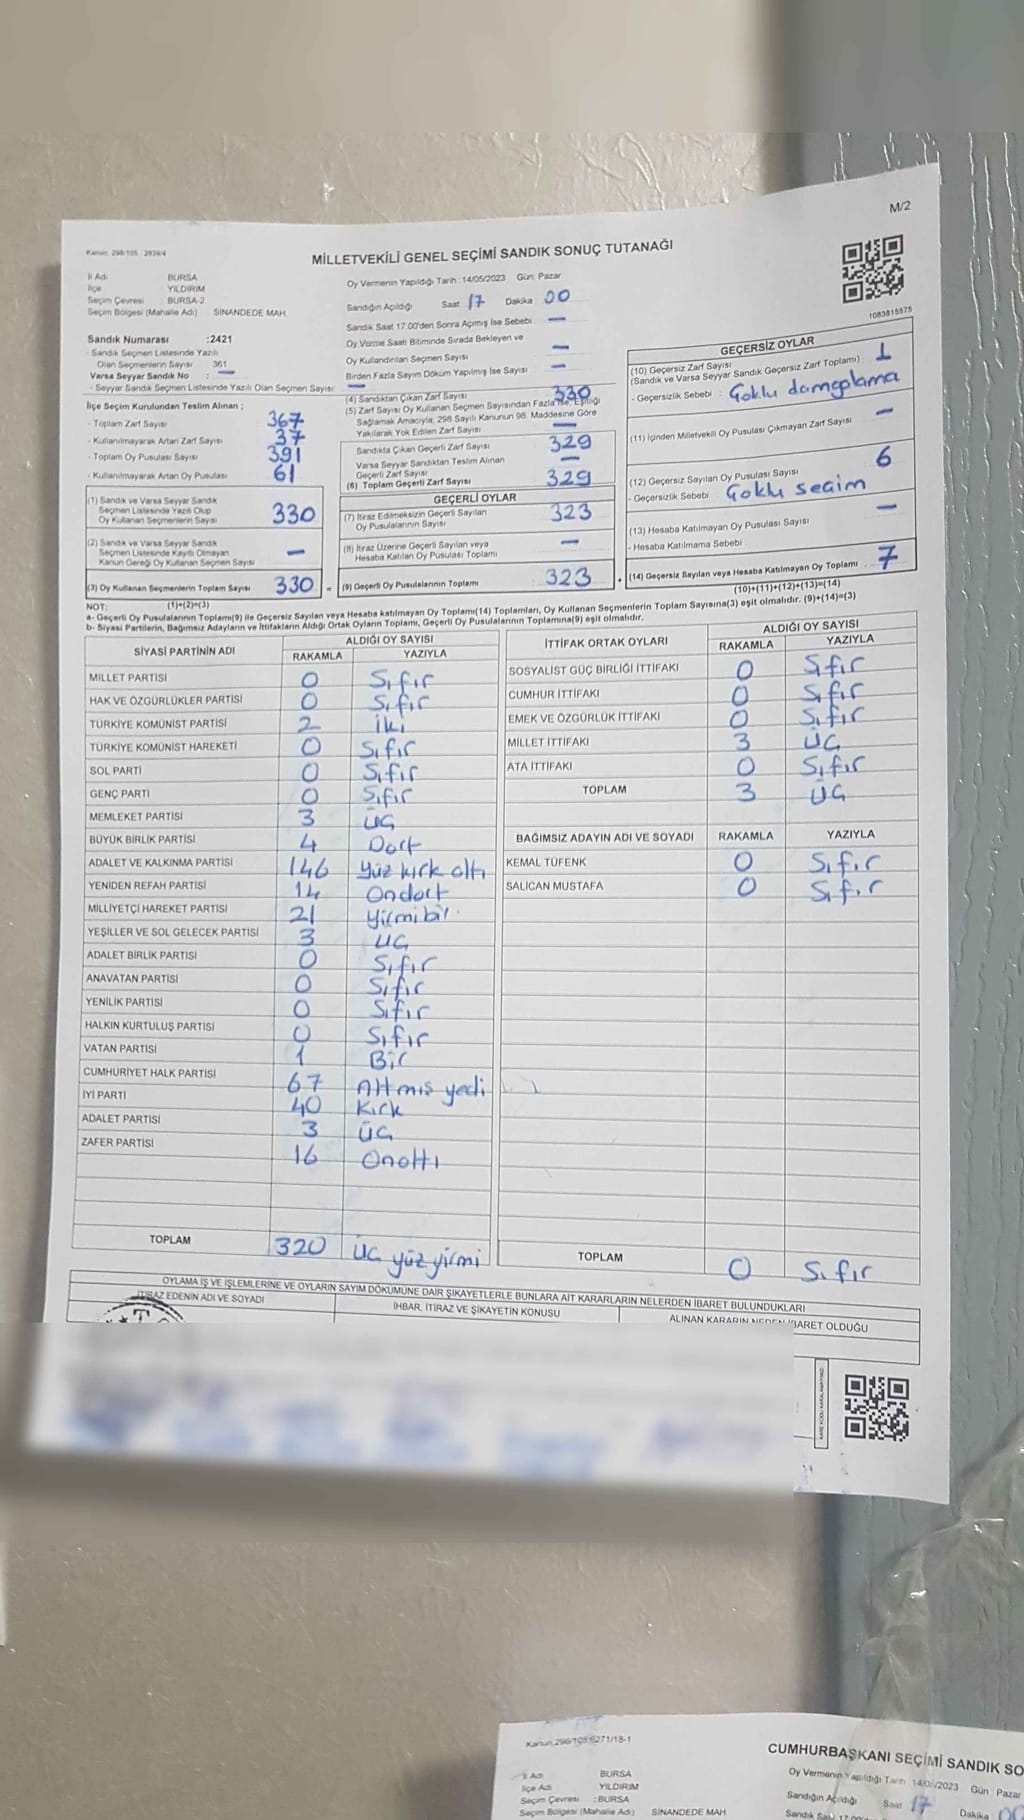 M/2
Kanun: 298/105 2839/4
MİLLETVEKİLİ GENEL SEÇİMİ SANDIK SONUÇ TUTANAĞI
İl Adı BURSA
İlçe YILDIRIM
Seçim Çevresi BURSA-2
Seçim Bölgesi (Mahalle Adı) SİNANDEDE MAH.
Oy Vermenin Yapıldığı Tarih :14/05/2023 Gün: Pazar
Sandığın Açıldığı Saat 17 Dakika 00
Sandık Saat 17.00'den Sonra Açımış İse Sebebi : —
Oy Verme Saati Bitiminde Sırada Bekleyen ve
Oy Kullandırılan Seçmen Sayısı —
Birden Fazla Sayım Döküm Yapılmış İse Sayısı —
1083815575
Sandık Numarası :2421
- Sandık Seçmen Listesinde Yazılı
Olan Seçmenlerin Sayısı 361
Varsa Seyyar Sandık No : —
- Seyyar Sandık Seçmen Listesinde Yazılı Olan Seçmen Sayısı: —
İlçe Seçim Kurulundan Teslim Alınan ;
- Toplam Zarf Sayısı 367
- Kullanılmayarak Artan Zarf Sayısı 37
- Toplam Oy Pusulası Sayısı 391
- Kullanılmayarak Artan Oy Pusulası 61
(1) Sandık ve Varsa Seyyar Sandık
Seçmen Listesinde Yazılı Olup
Oy Kullanan Seçmenlerin Sayısı 330
(2) Sandık ve Varsa Seyyar Sandık
Seçmen Listesinde Kayıtlı Olmayan
Kanun Gereği Oy Kullanan Seçmen Sayısı —
(3) Oy Kullanan Seçmenlerin Toplam Sayısı 330 =
(1)+(2)=(3)
(4) Sandıktan Çıkan Zarf Sayısı 330
(5) Zarf Sayısı Oy Kullanan Seçmen Sayısından Fazla İse, Eşitliği
Sağlamak Amacıyla; 298 Sayılı Kanunun 98. Maddesine Göre
Yakılarak Yok Edilen Zarf Sayısı —
Sandıkta Çıkan Geçerli Zarf Sayısı 329
Varsa Seyyar Sandıktan Teslim Alınan
Geçerli Zarf Sayısı —
(6) Toplam Geçerli Zarf Sayısı 329
GEÇERLİ OYLAR
(7) İtiraz Edilmeksizin Geçerli Sayılan
Oy Pusulalarının Sayısı 323
(8) İtiraz Üzerine Geçerli Sayılan veya
Hesaba Katılan Oy Pusulası Toplamı —
(9) Geçerli Oy Pusulalarının Toplamı 323 +
GEÇERSİZ OYLAR
(10) Geçersiz Zarf Sayısı
(Sandık ve Varsa Seyyar Sandık Geçersiz Zarf Toplamı) : 1
- Geçersizlik Sebebi : Çoklu damgalama
(11) İçinden Milletvekili Oy Pusulası Çıkmayan Zarf Sayısı —
(12) Geçersiz Sayılan Oy Pusulası Sayısı 6
- Geçersizlik Sebebi : Çoklu seçim
(13) Hesaba Katılmayan Oy Pusulası Sayısı —
- Hesaba Katılmama Sebebi :
(14) Geçersiz Sayılan veya Hesaba Katılmayan Oy Toplamı : 7
(10)+(11)+(12)+(13)=(14)
NOT:
a- Geçerli Oy Pusulalarının Toplamı(9) ile Geçersiz Sayılan veya Hesaba katılmayan Oy Toplamı(14) Toplamları, Oy Kullanan Seçmenlerin Toplam Sayısına(3) eşit olmalıdır. (9)+(14)=(3)
b- Siyasi Partilerin, Bağımsız Adayların ve İttifakların Aldığı Ortak Oyların Toplamı, Geçerli Oy Pusulalarının Toplamına(9) eşit olmalıdır.
SİYASİ PARTİNİN ADI ALDIĞI OY SAYISI
RAKAMLA YAZIYLA
MİLLET PARTİSİ 0 Sıfır
HAK VE ÖZGÜRLÜKLER PARTİSİ 0 Sıfır
TÜRKİYE KOMÜNİST PARTİSİ 2 İki
TÜRKİYE KOMÜNİST HAREKETİ 0 Sıfır
SOL PARTİ 0 Sıfır
GENÇ PARTİ 0 Sıfır
MEMLEKET PARTİSİ 3 Üç
BÜYÜK BİRLİK PARTİSİ 4 Dört
ADALET VE KALKINMA PARTİSİ 146 Yüz kırk altı
YENİDEN REFAH PARTİSİ 14 Ondört
MİLLİYETÇİ HAREKET PARTİSİ 21 Yirmibir
YEŞİLLER VE SOL GELECEK PARTİSİ 3 Üç
ADALET BİRLİK PARTİSİ 0 Sıfır
ANAVATAN PARTİSİ 0 Sıfır
YENİLİK PARTİSİ 0 Sıfır
HALKIN KURTULUŞ PARTİSİ 0 Sıfır
VATAN PARTİSİ 1 Bir
CUMHURİYET HALK PARTİSİ 67 Altmış yedi
İYİ PARTİ 40 Kırk
ADALET PARTİSİ 3 Üç
ZAFER PARTİSİ 16 Onaltı
TOPLAM 320 Üç yüz yirmi
İTTİFAK ORTAK OYLARI ALDIĞI OY SAYISI
RAKAMLA YAZIYLA
SOSYALİST GÜÇ BİRLİĞİ İTTİFAKI 0 Sıfır
CUMHUR İTTİFAKI 0 Sıfır
EMEK VE ÖZGÜRLÜK İTTİFAKI 0 Sıfır
MİLLET İTTİFAKI 3 Üç
ATA İTTİFAKI 0 Sıfır
TOPLAM 3 Üç
BAĞIMSIZ ADAYIN ADI VE SOYADI RAKAMLA YAZIYLA
KEMAL TÜFENK 0 Sıfır
SALİCAN MUSTAFA 0 Sıfır
TOPLAM 0 Sıfır
OYLAMA İŞ VE İŞLEMLERİNE VE OYLARIN SAYIM DÖKÜMÜNE DAİR ŞİKAYETLERLE BUNLARA AİT KARARLARIN NELERDEN İBARET BULUNDUKLARI
İTİRAZ EDENİN ADI VE SOYADI İHBAR, İTİRAZ VE ŞİKAYETİN KONUSU ALINAN KARARIN NEDEN İBARET OLDUĞU
Kanun:298/105:6271/18-1
CUMHURBAŞKANI SEÇİMİ SANDIK SO
İl Adı BURSA
İlçe Adı YILDIRIM
Seçim Çevresi :BURSA
Seçim Bölgesi (Mahalle Adı) SİNANDEDE MAH
Oy Vermenin Yapıldığı Tarih 14/05/2023 Gün: Pazar
Sandığın Açıldığı Saat 17 Dakika 00